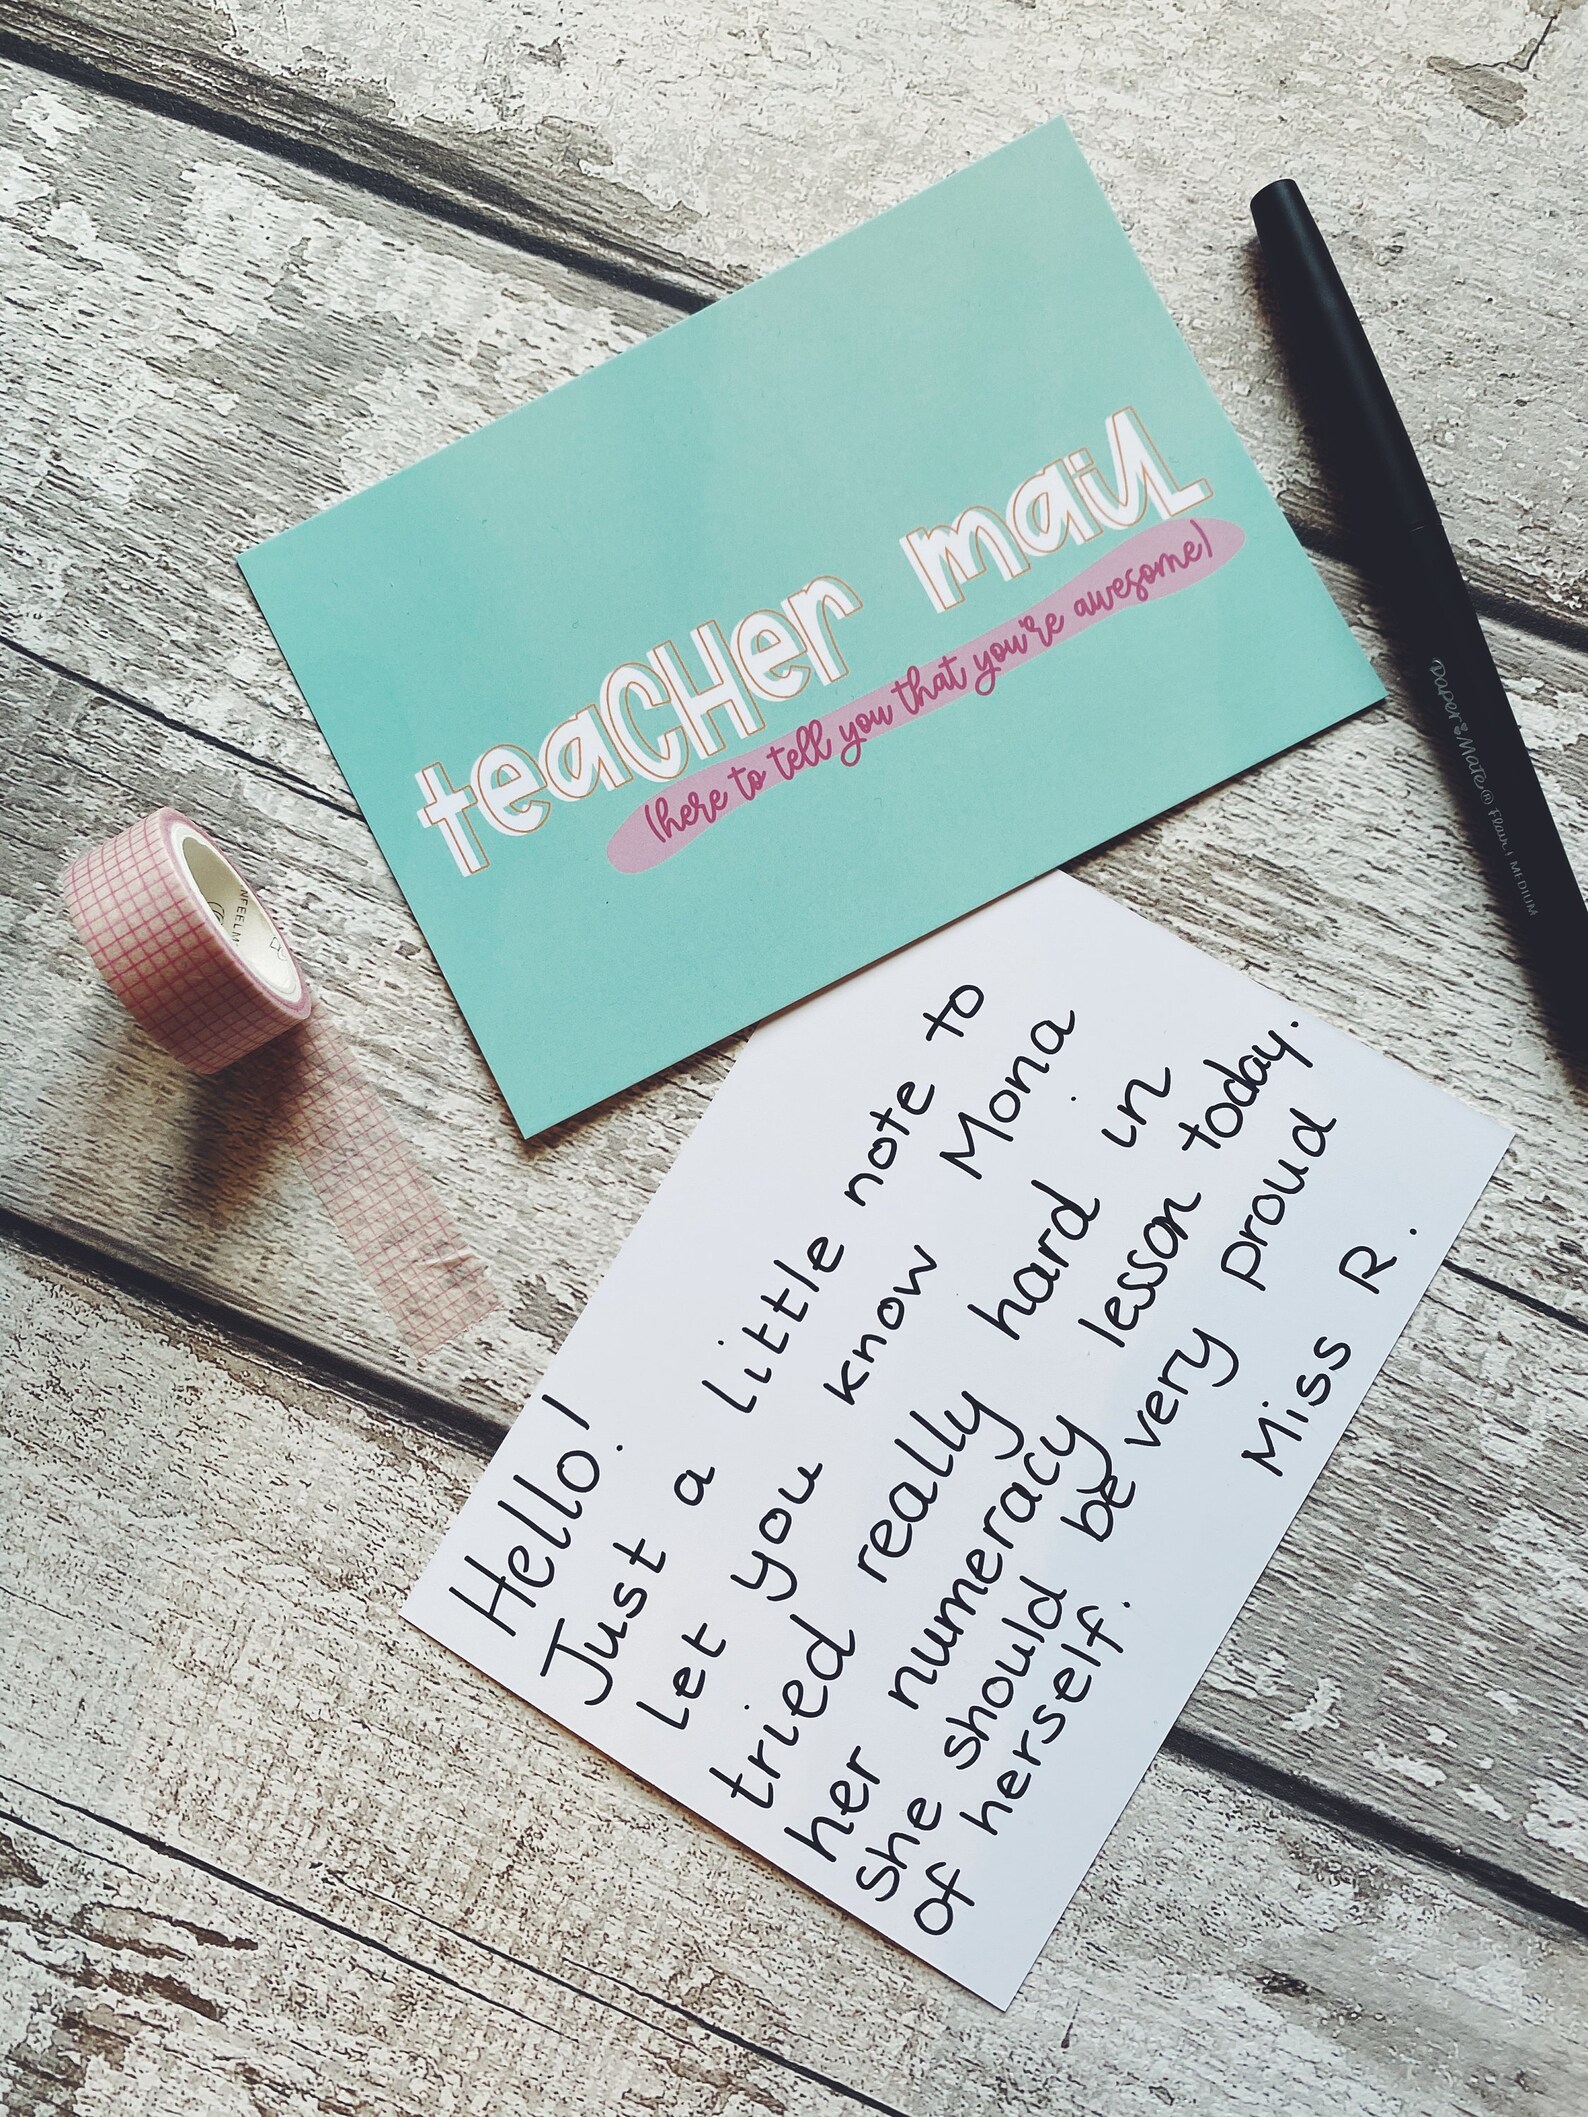 teacher mail
(here to tell you that you're awesome)
Paper Mate® Flair | MEDIUM
NFEELM
Hello!
Just a little note to
let you know Mona
tried really hard in
her numeracy lesson today.
She should be very proud
of herself.
Miss R.